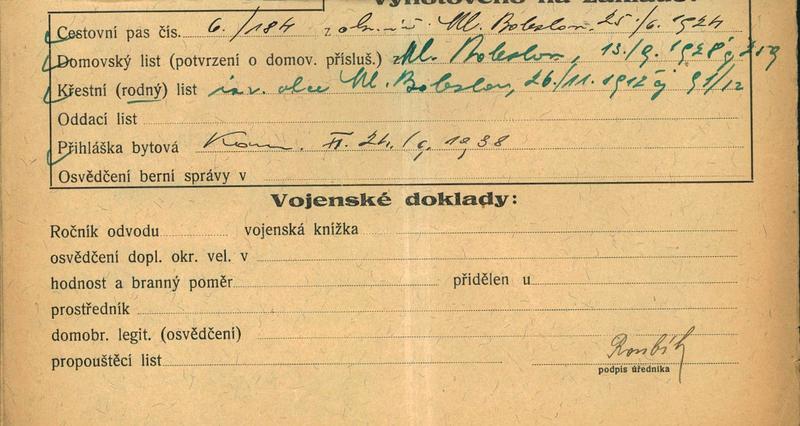 vyhotoveno na základě:
Cestovní pas čís. 6./184 z okr. Ml. Boleslav. 25./6. 1924
Domovský list (potvrzení o domov. přísluš.) Ml. Boleslav, 13./9. 1928
Křestní (rodný) list isr. obce Ml. Boleslav, 26/11. 1912 čj 91/12
Oddací list
Přihláška bytová Kom. II. 24./9. 1938
Osvědčení berní správy v
Vojenské doklady:
Ročník odvodu vojenská knížka
osvědčení dopl. okr. vel. v
hodnost a branný poměr přidělen u
prostředník
domobr. legit. (osvědčení)
propouštěcí list
Roubík
podpis úředníka